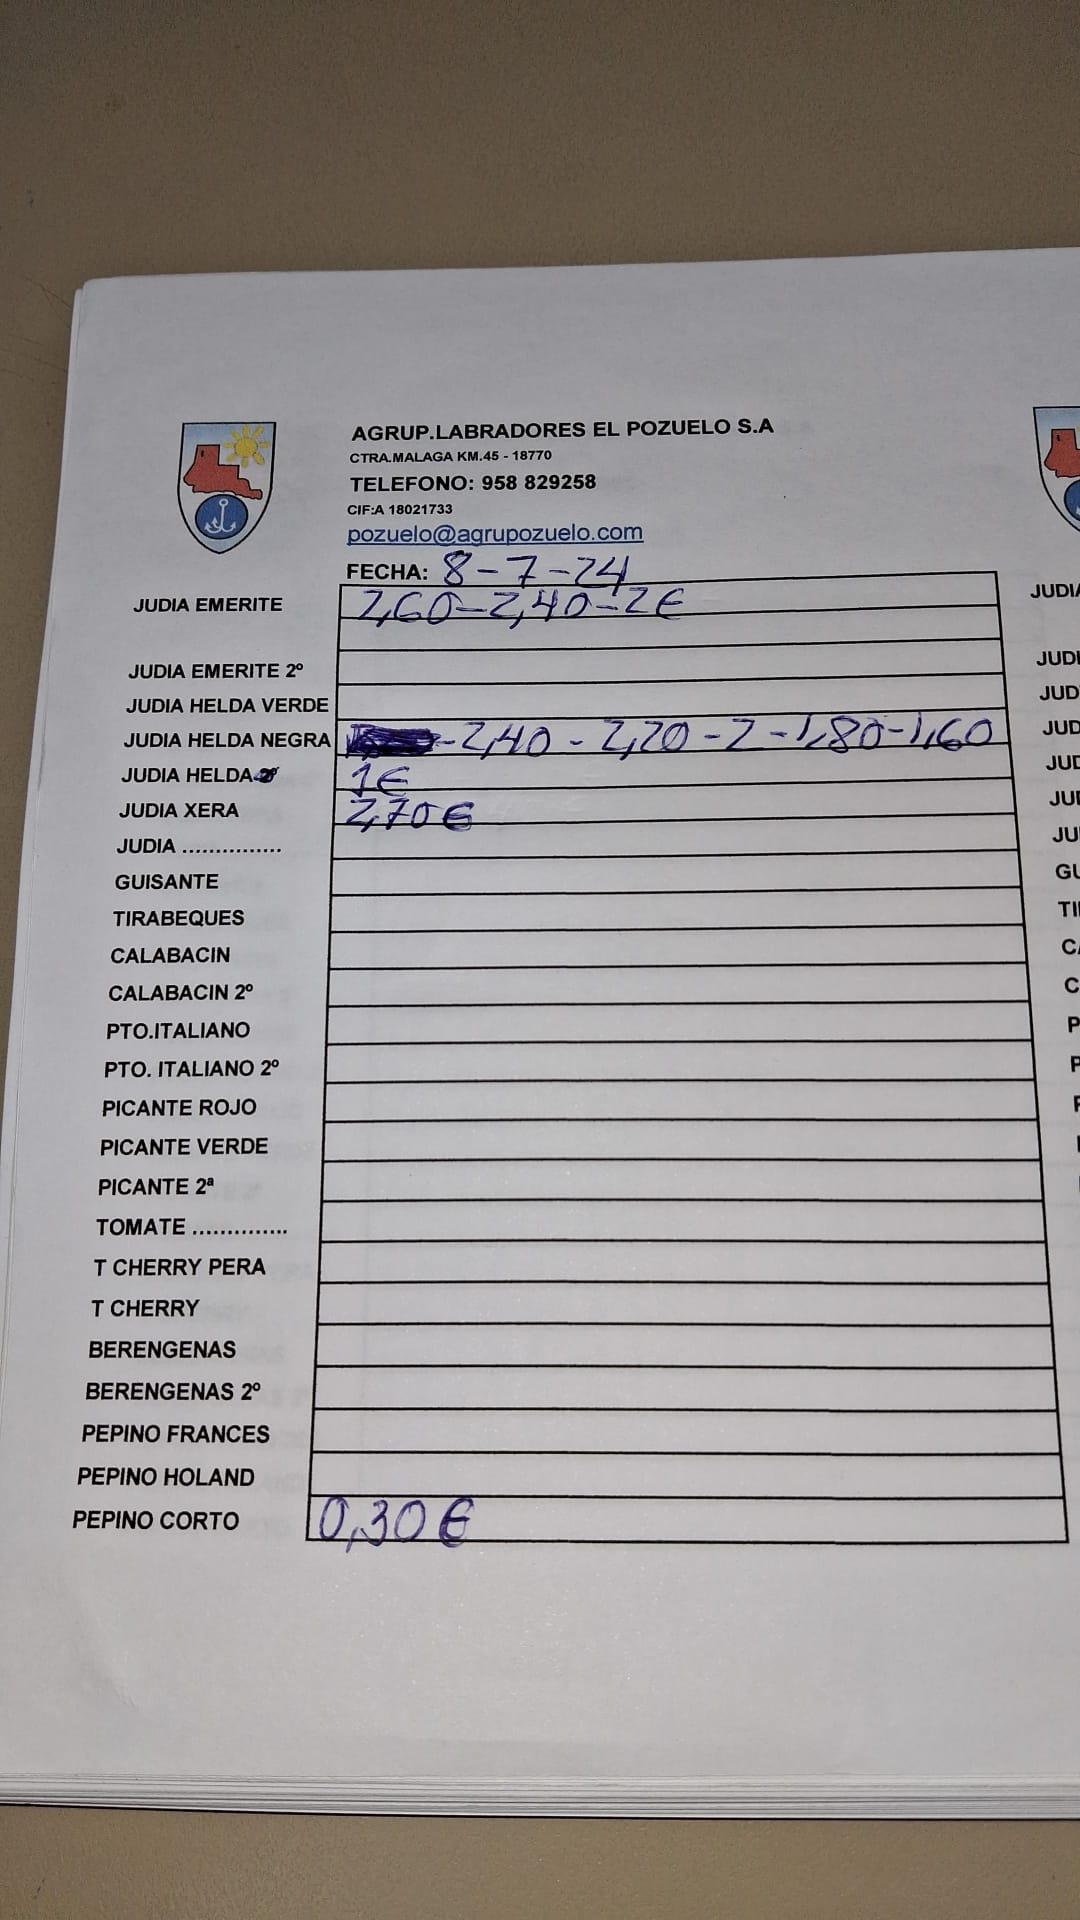 AGRUP.LABRADORES EL POZUELO S.A
CTRA.MALAGA KM.45 - 18770
TELEFONO: 958 829258
CIF:A 18021733
pozuelo@agrupozuelo.com
FECHA: 8-7-24
JUDIA EMERITE 2,60-2,40-2€
JUDIA EMERITE 2º
JUDIA HELDA VERDE
JUDIA HELDA NEGRA -2,40-2,20-2-1,80-1,60
JUDIA HELDA 2º 1€
JUDIA XERA 2,70€
JUDIA ...............
GUISANTE
TIRABEQUES
CALABACIN
CALABACIN 2º
PTO.ITALIANO
PTO. ITALIANO 2º
PICANTE ROJO
PICANTE VERDE
PICANTE 2ª
TOMATE ..............
T CHERRY PERA
T CHERRY
BERENGENAS
BERENGENAS 2º
PEPINO FRANCES
PEPINO HOLAND
PEPINO CORTO 0,30€